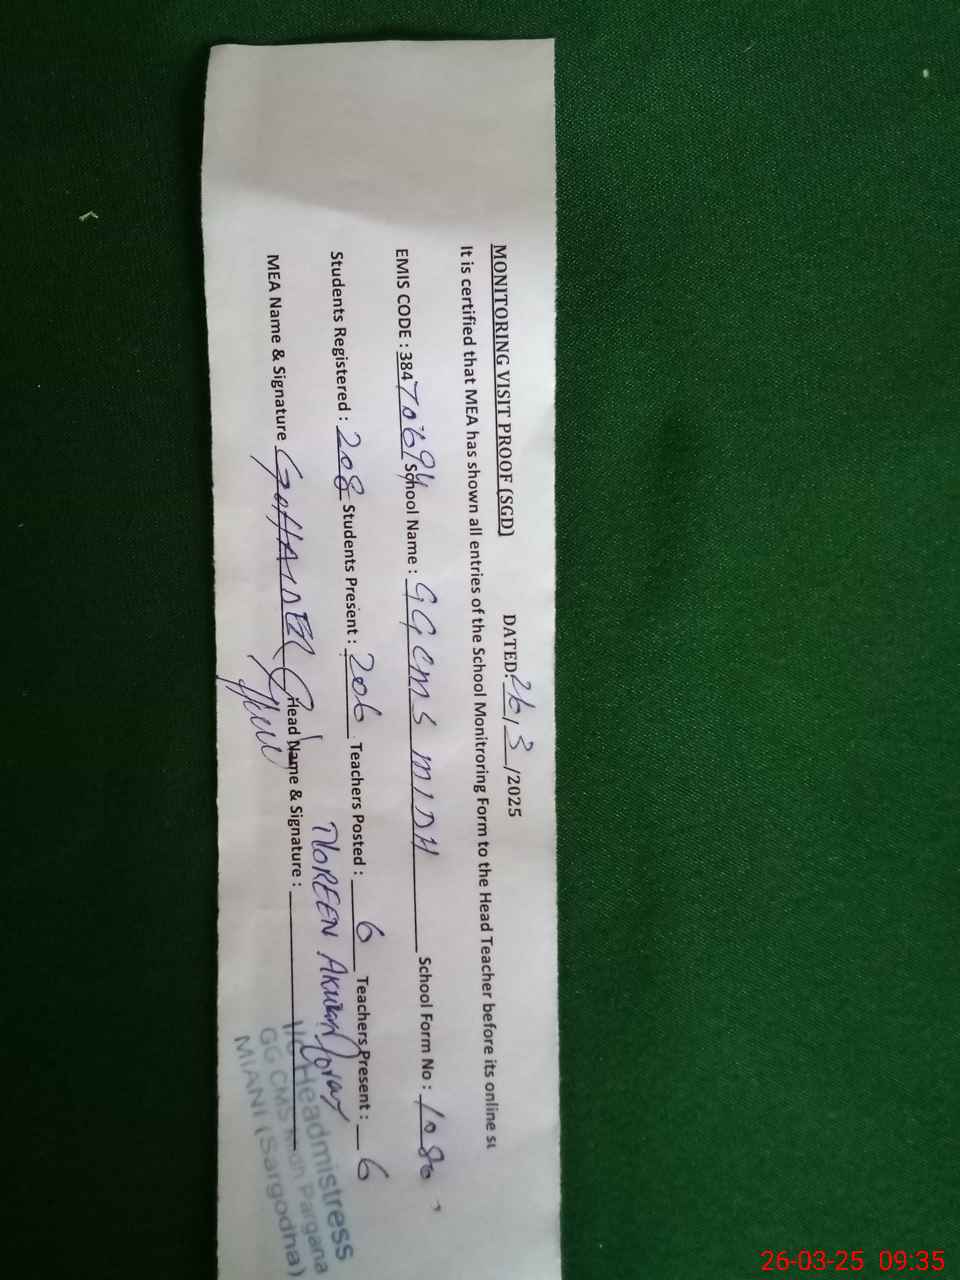 MONITORING VISIT PROOF (SGD) DATED: 26/3/2025
It is certified that MEA has shown all entries of the School Monitroring Form to the Head Teacher before its online su
EMIS CODE : 38470694 School Name : GGCMS MIDH School Form No : 1080
Students Registered : 208 Students Present : 206 Teachers Posted : 6 Teachers Present : 6
MEA Name & Signature Head Name & Signature : NOREEN AKHTAR
I/C Headmistress
GG CMS Midh Pargana
MIANI (Sargodha)
26-03-25 09:35